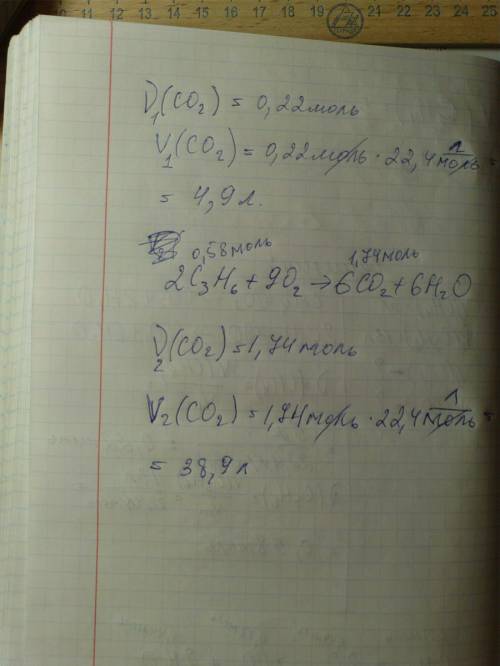 10 11 12 13 14 15 16 17 18 19 21 22 23 24 25
ν₁(CO₂) = 0,22моль
V₁(CO₂) = 0,22моль · 22,4 л/моль =
= 4,9л.
0,58моль 1,74моль
2C₃H₆ + 9O₂ → 6CO₂ + 6H₂O
ν₂(CO₂) = 1,74моль
V₂(CO₂) = 1,74моль · 22,4 л/моль =
= 38,9л